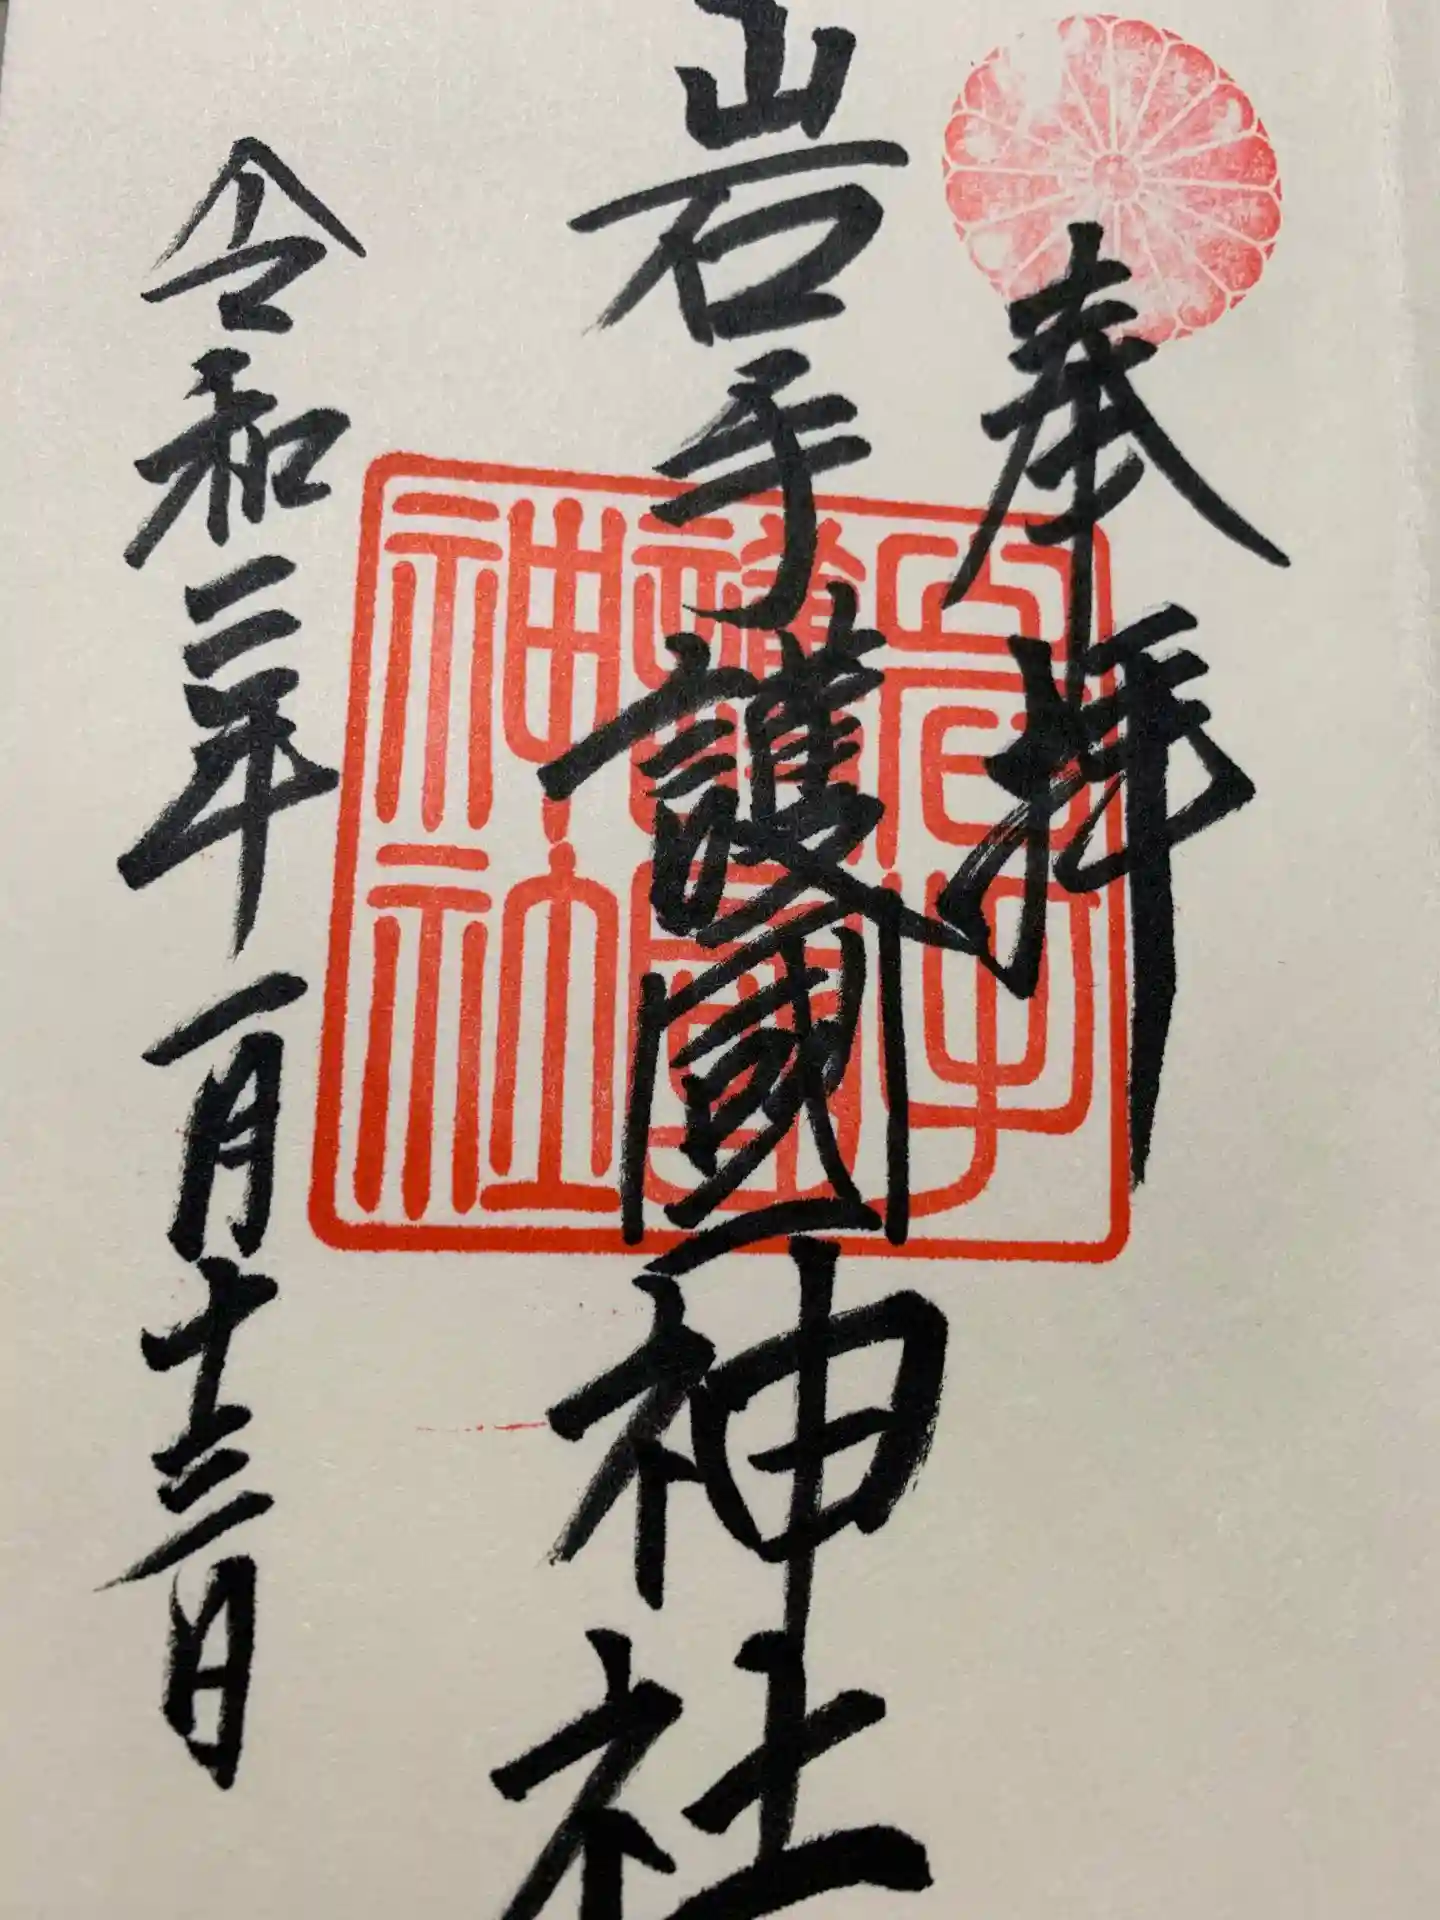 奉拝
岩手護國神社
令和二年一月十三日
岩手
護國
神社